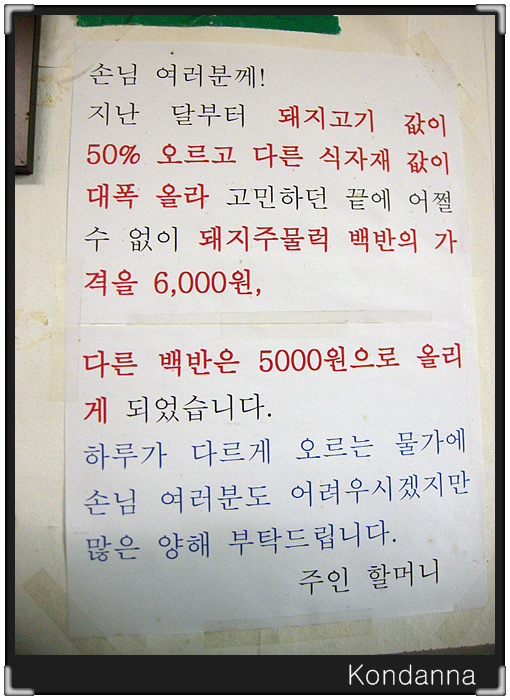 손님 여러분께!
지난 달부터 돼지고기 값이
50% 오르고 다른 식자재 값이
대폭 올라 고민하던 끝에 어쩔
수 없이 돼지주물럭 백반의 가
격을 6,000원,
다른 백반은 5000원으로 올리
게 되었습니다.
하루가 다르게 오르는 물가에
손님 여러분도 어려우시겠지만
많은 양해 부탁드립니다.
주인 할머니
Kondanna